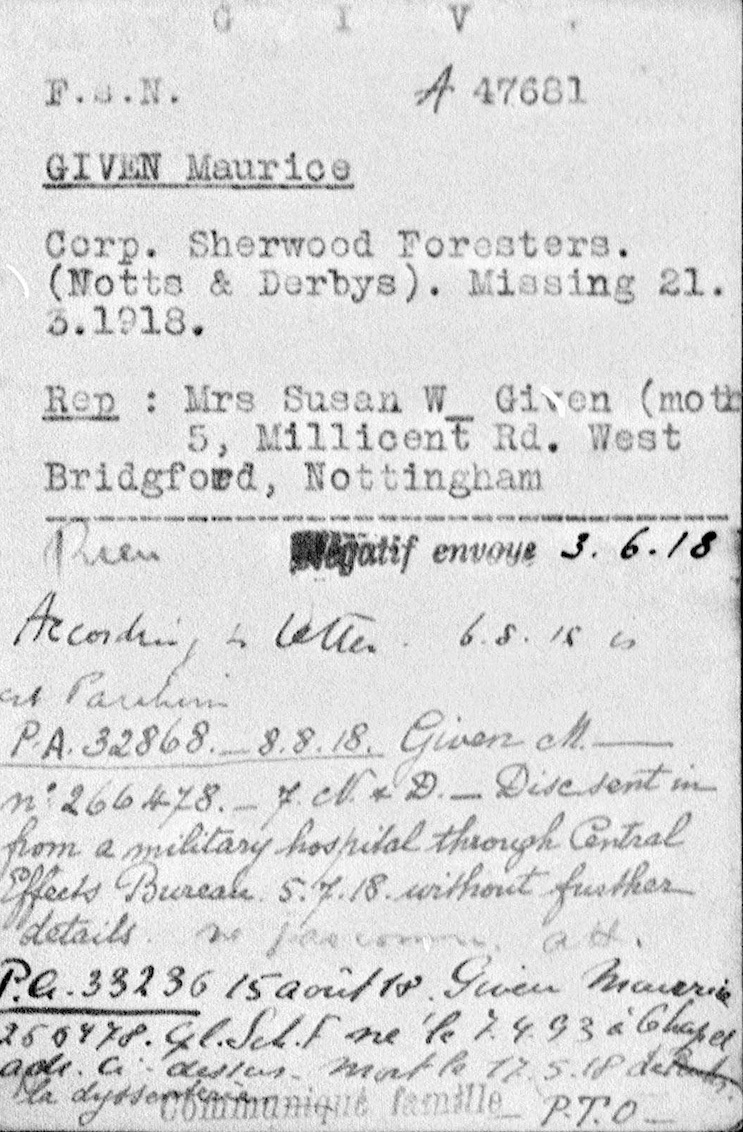 G I V
F.s.N. A 47681
GIVEN Maurice
Corp. Sherwood Foresters.
(Notts & Derbys). Missing 21.
3.1918.
Rep : Mrs Susan W_ Given (moth
5, Millicent Rd. West
Bridgford, Nottingham
Rien Négatif envoye 3.6.18
According to letter. 6.8.18 is
at Parchim
P.A. 32868. _ 8.8.18. Given M. —
n° 266478. _ 7. N. & D. _ Disc sent in
from a military hospital through Central
Effects Bureau. 5.7.18. without further
details. ne pas comm. att.
P.A. 33236 15 août 18. Given Maurice
Sch. F né le 7.4.93 à Chapel
adr. ci-dessus. mort le 17.5.18 de
la dyssenterie
Communiqué famille_ P.T.O _